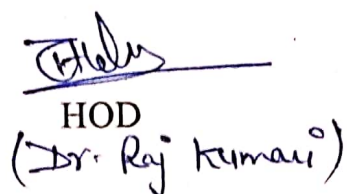 HOD
(Dr. Raj Kumari)